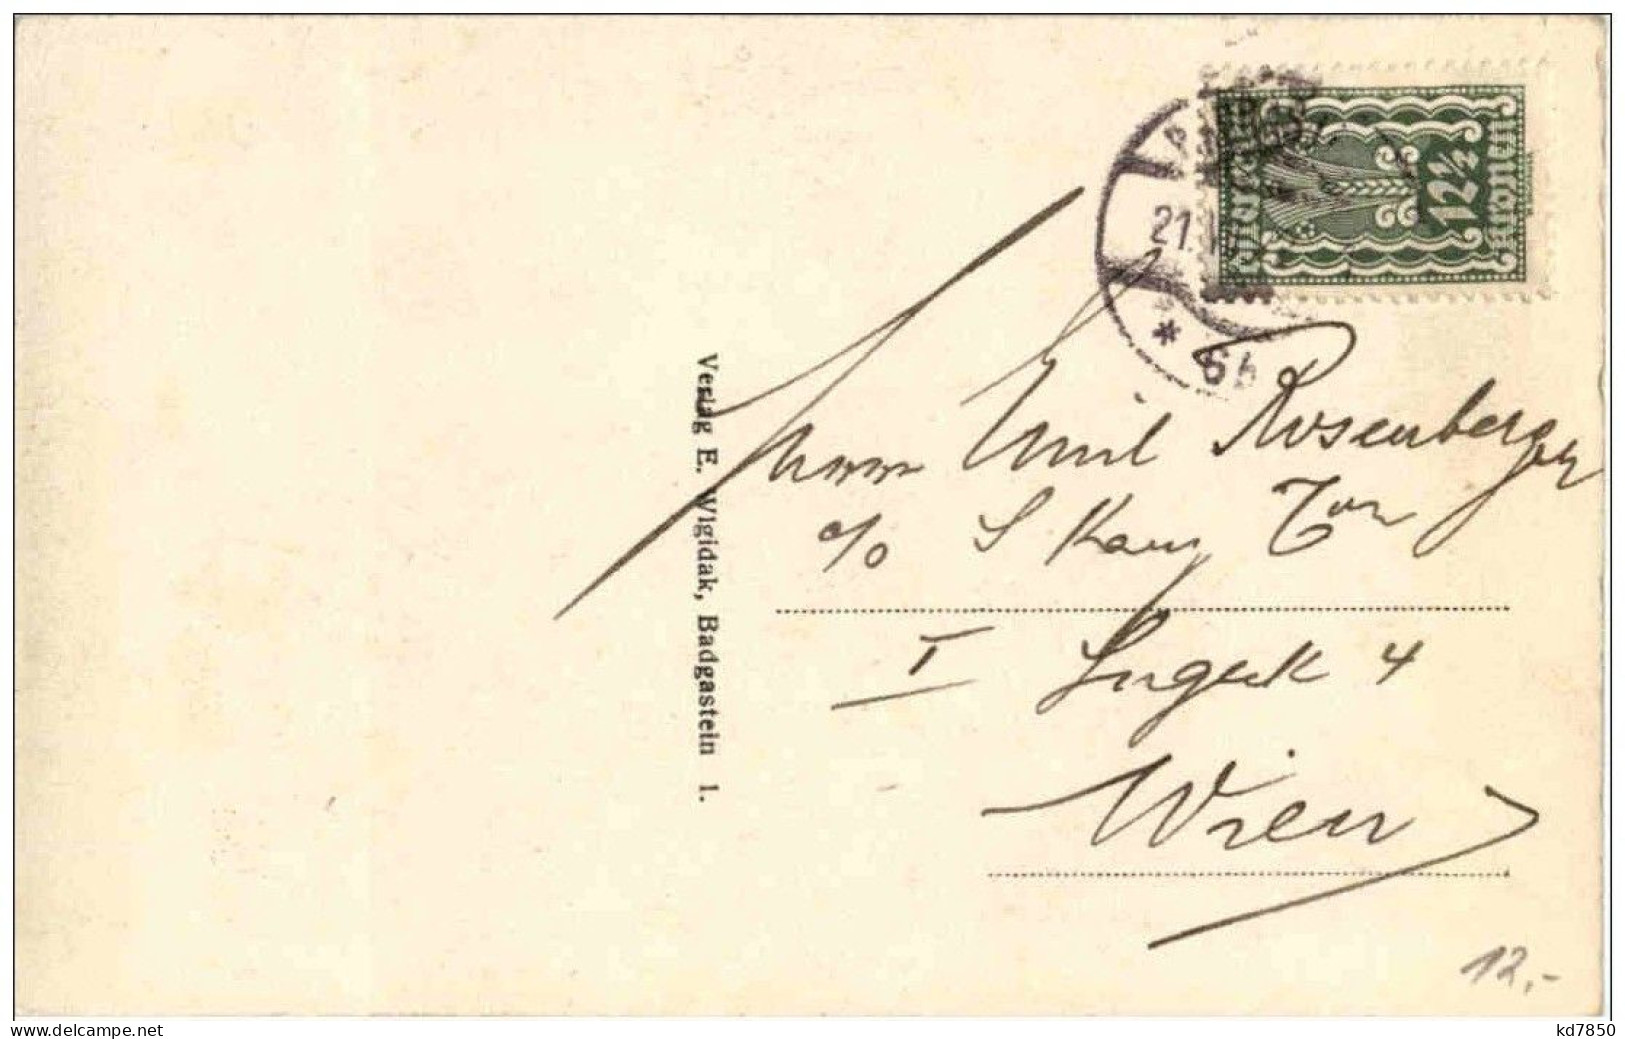 12½
Kronen
21.
* 6b
Herrn Emil Rosenberger
c/o S
I Lugeck 4
Wien
Verlag E. Wigidak, Badgastein 1.
12,-
www.delcampe.net
kd7850